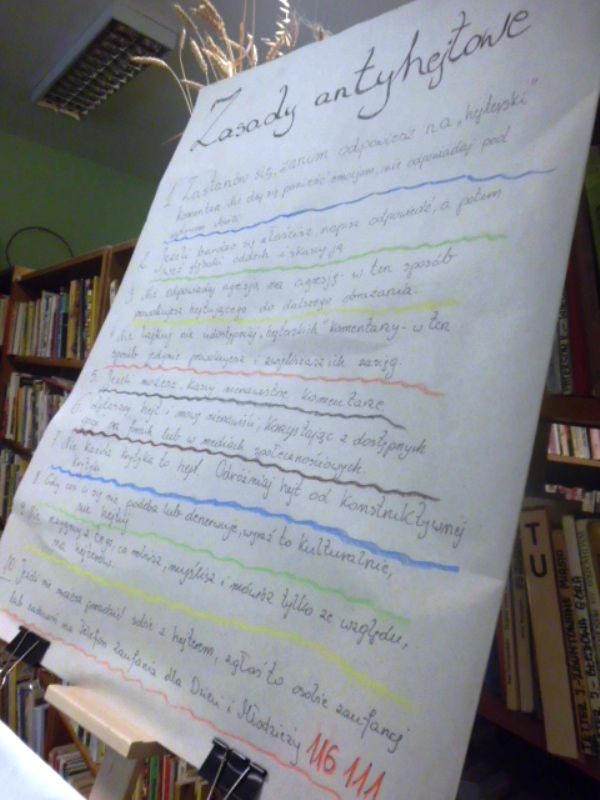 Zasady antyhejtowe
1. Zastanów się, zanim odpowiesz na „hejterski”
komentarz. Nie daj się ponieść emocjom, nie odpowiadaj pod
wpływem
2. Jeżeli bardzo się złościsz, napisz odpowiedź, a potem
weź głęboki oddech i skasuj ją
3. Nie odpowiadaj agresją na agresję - w ten sposób
prowokujesz hejtującego do dalszego obrażania.
4. Nie lajkuj, nie udostępniaj „hejterskich” komentarzy - w ten
sposób jedynie prowokujesz i zwiększasz ich zasięg.
5. Jeżeli możesz, kasuj nienawistne komentarze
6. hejt i mowę nienawiści, korzystając z dostępnych
opcji na lub w mediach społecznościowych.
7. Nie każda krytyka to hejt. Odróżniaj hejt od konstruktywnej
krytyki
8. Gdy coś ci się nie podoba lub denerwuje, wyraź to kulturalnie,
nie hejtuj
9. Nie rezygnuj z tego, co robisz, myślisz i mówisz tylko ze względu,
na hejterów.
10. Jeśli nie możesz poradzić sobie z hejterem, zgłoś to osobie zaufanej
lub zadzwoń na Telefon Zaufania dla Dzieci i Młodzieży 116 111
TU